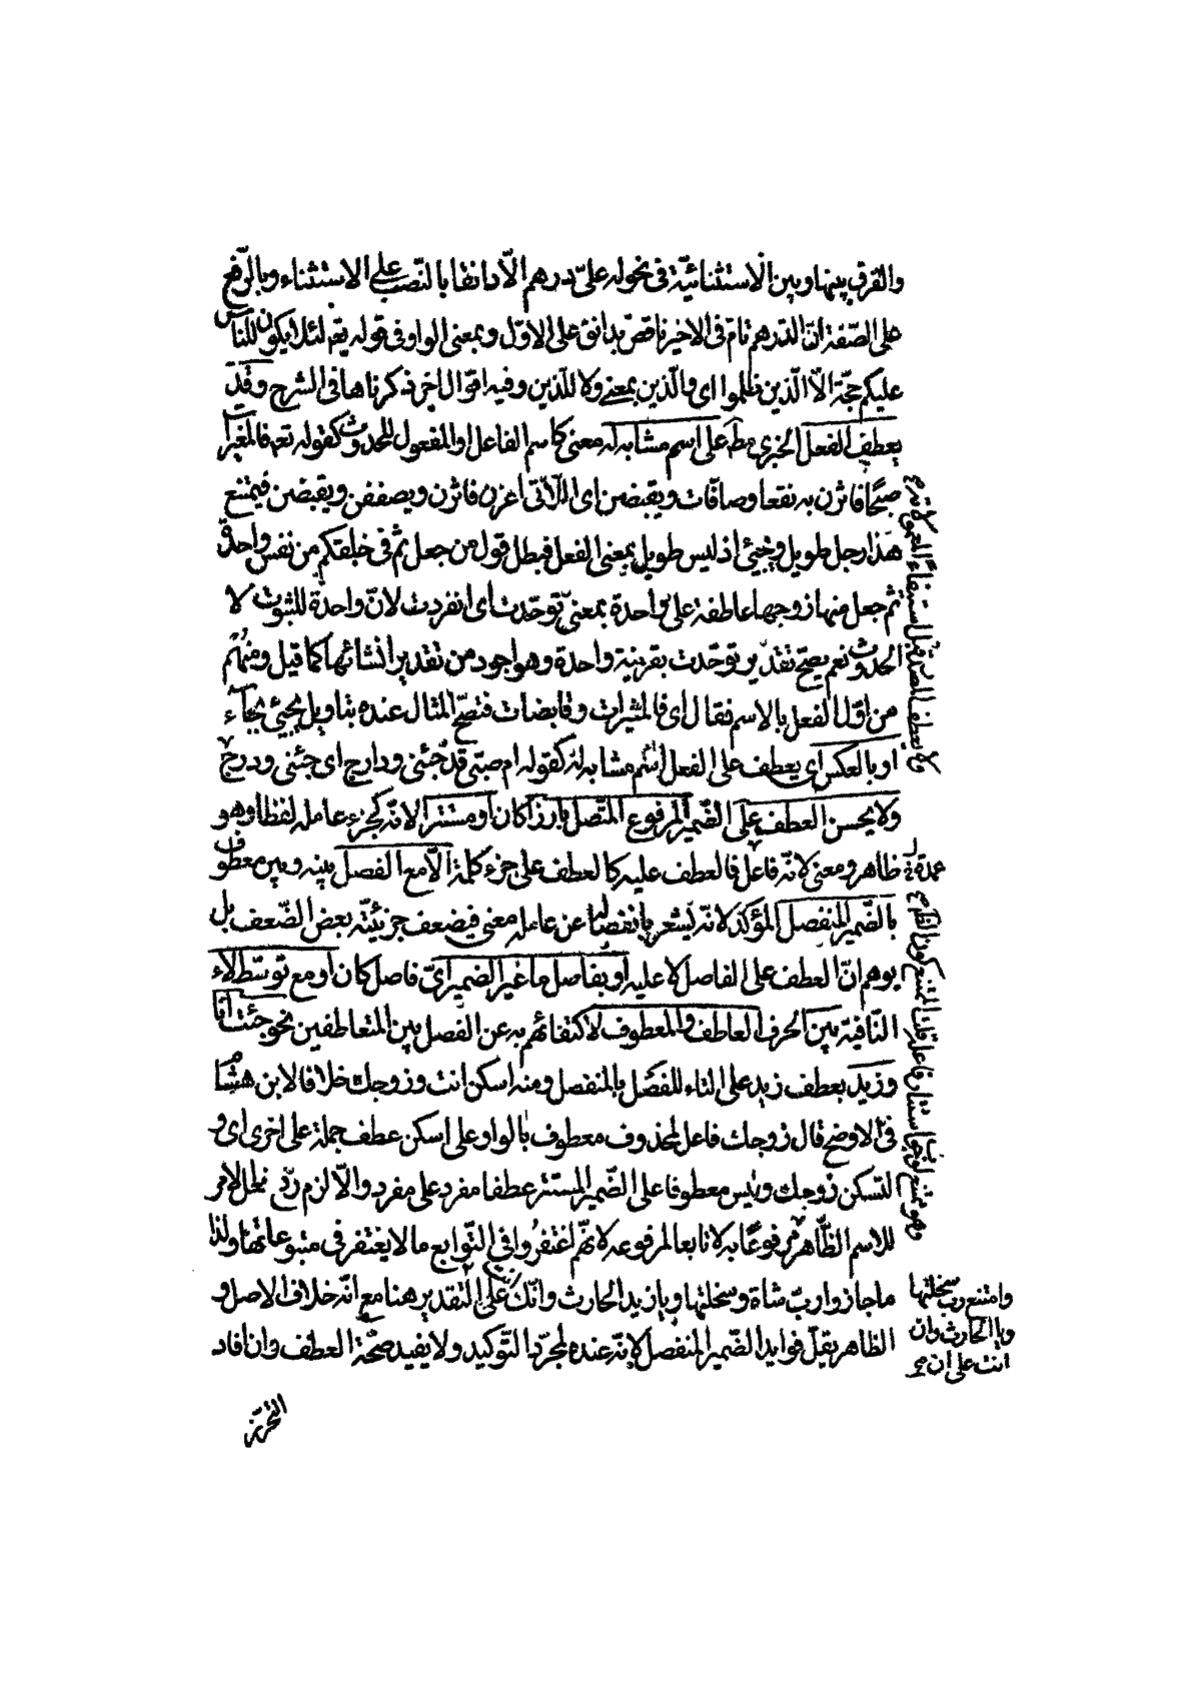 والفرق بينها وبين الاستثنائيّة فى نحو له علىّ درهم الّا دانقا بالنّصب على الاستثناء وبالرّفع
على الصّفة انّ الدّرهم تامّ فى الاخير ناقص بدانق على الاوّل وبمعنى الواو فى قوله يعه لئلّا يكون للنّاس
عليكم حجّة الّا الّذين ظلموا اى والّذين بمعنے ولا للّذين وفيه اقوال اخر ذكرناها فى الشرح وقد
يعطف الفعل الخبرى مط على اسم مشابه له معنى كاسم الفاعل او المفعول للحدوث كقوله تعه فالمغيرات
صبحًا فاثرن به نقعا وصافّات ويقبضن اى اللّاتى اغرن فاثرن ويصففن ويقبضن فيمتنع
هذا رجل طويل ويجيئ اذ ليس طويل بمعنى الفعل فبطل قول من جعل ثم فى خلقكم من نفس واحدة
ثم جعل منها زوجها عاطفة على واحدة بمعنى توحّدت اى انفردت لانّ واحدة للثبوت لا
الحدوث نعم يصحّ تقدير توحّدت بقرينة واحدة وهو اجود من تقدير انشائها كما قيل ومنهم
من اوّل الفعل بالاسم فقال اى فالمثيرات وقابضات فتصحّ المثال عنده بتاويل يجيئ بجاء
او بالعكس اى يعطف على الفعل اسم مشابه له كقوله ام صبىّ قد حبى ودارج اى حبى ودرج
ولا يحسن العطف على الضّمير المرفوع المتّصل بارزا كان او مستترا لانّه كجزء عامله لفظا وهو
ظاهر ومعنى لانّه فاعل فالعطف عليه كالعطف على جزء كلمة الّا مع الفصل بينه وبين معطوف
بالضّمير المنفصل المؤكّد لانّه يشعر بانفصاله عن عامله معنى فيضعف جزئيّته بعض الضّعف بل
يوهم انّ العطف على الفاصل لا عليه او بفاصل ما غير الضمير اىّ فاصل كان او مع توسّط لاء
النّافية بين الحرف العاطف والمعطوف لاكتفائهم به عن الفصل بين المتعاطفين نحو جئت انا
وزيد بعطف زيد على التاء للفصل بالمنفصل ومنه اسكن انت وزوجك خلافا لابن هشام
فى الاوضح قال زوجك فاعل لمحذوف معطوف بالواو على اسكن عطف جملة على اخرى اى و
لتسكن زوجك وليس معطوفا على الضّمير المستتر عطفا مفرد على مفرد والّا لزم رفع فعل الامر
للاسم الظّاهر مرفوعًا به لا تابعا لمرفوعه لانّهم اغتفروا فى التّوابع ما لا يغتفر فى متبوعاتها ولذا
ما جاز وا ربّ شاة وسخلتها ويا زيد الحارث وانّك على التّقدير هنا مع انّه خلاف الاصل و
الظاهر يقلّ فوايد الضّمير المنفصل لانّه عنده لمجرّد التّوكيد ولا يفيد صحّة العطف وان افاد
وامتنع ربّ سخلتها
ويا الحارث وان
انت على ان